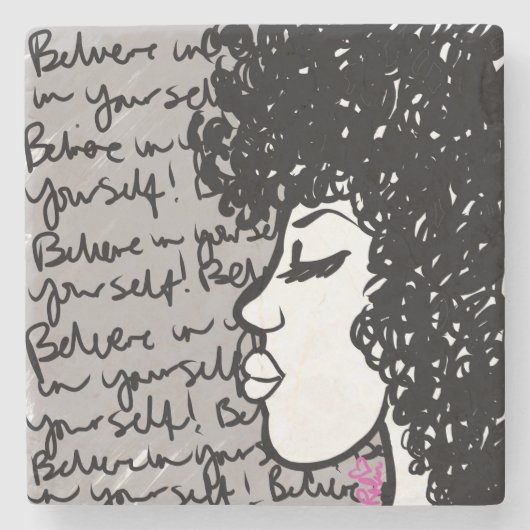 Believe in
in yourself
Believe in
yourself!
Believe in yourse
yourself! Bel
Believe in
in yourself
yourself! Be
Believe in yours
in yourself! Believe